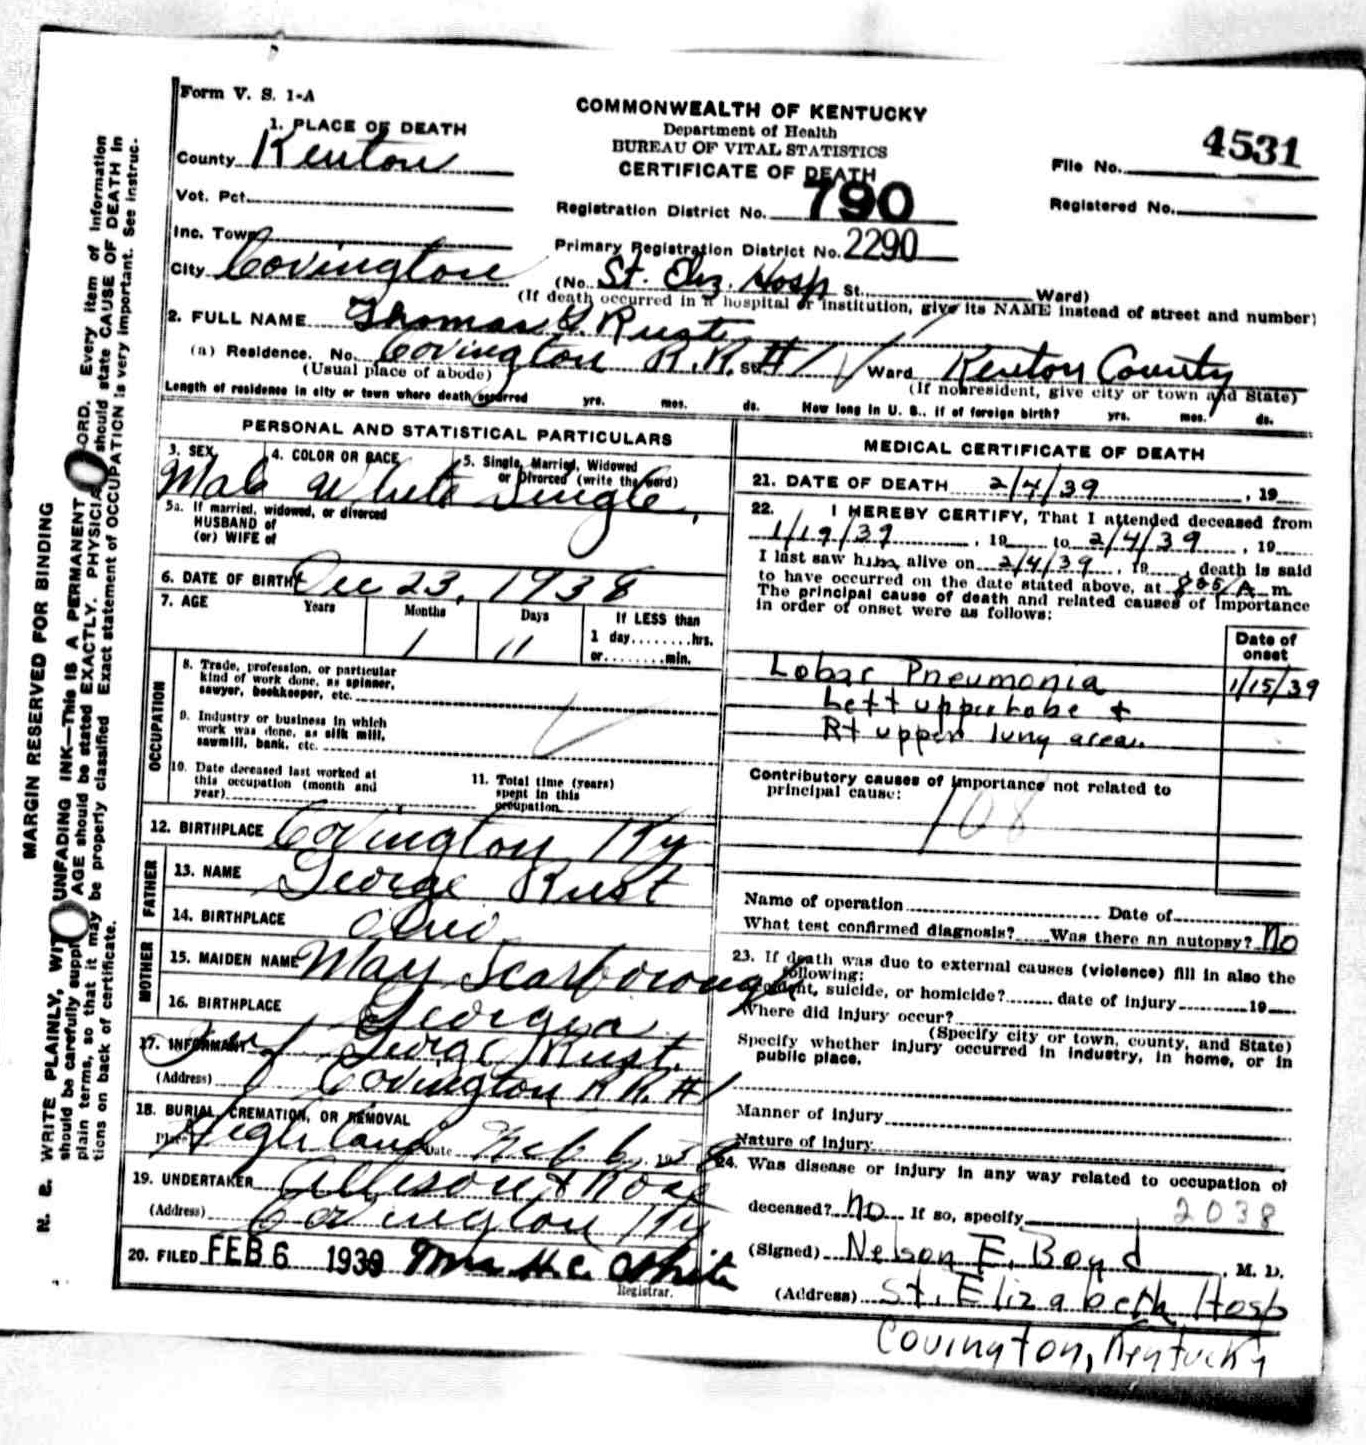 Form V. S. 1-A
COMMONWEALTH OF KENTUCKY
Department of Health
BUREAU OF VITAL STATISTICS
CERTIFICATE OF DEATH
File No. 4531
Registered No.
1. PLACE OF DEATH
County Kenton
Vot. Pct.
Inc. Town
City Covington
Registration District No. 790
Primary Registration District No. 2290
(No. St. Eliz. Hosp St. Ward)
(If death occurred in a hospital or institution, give its NAME instead of street and number)
2. FULL NAME Thomas G. Rust
(a) Residence. No. Covington R.R. St. #1 Ward Kenton County
(Usual place of abode) (If nonresident, give city or town and State)
Length of residence in city or town where death occurred yrs. mos. ds. How long in U. S., if of foreign birth? yrs. mos. ds.
PERSONAL AND STATISTICAL PARTICULARS
3. SEX Male
4. COLOR OR RACE White
5. Single, Married, Widowed
or Divorced (write the word) Single
5a. If married, widowed, or divorced
HUSBAND of
(or) WIFE of
6. DATE OF BIRTH Dec 23, 1938
7. AGE Years Months Days If LESS than
1 11 1 day, ........hrs.
or........min.
OCCUPATION
8. Trade, profession, or particular
kind of work done, as spinner,
sawyer, bookkeeper, etc.
9. Industry or business in which
work was done, as silk mill,
sawmill, bank, etc.
10. Date deceased last worked at
this occupation (month and
year)
11. Total time (years)
spent in this
occupation
12. BIRTHPLACE Covington Ky
FATHER
13. NAME George Rust
14. BIRTHPLACE Ohio
MOTHER
15. MAIDEN NAME May Scarborough
16. BIRTHPLACE Georgia
17. INFORMANT George Rust.
(Address) Covington R.R. #1
18. BURIAL, CREMATION, OR REMOVAL
Place Highland Date Feb 6, 1939
19. UNDERTAKER Allison & Rose
(Address) Covington Ky
20. FILED FEB 6 1939 Mrs H.C. White
Registrar.
MEDICAL CERTIFICATE OF DEATH
21. DATE OF DEATH 2/4/39, 19
22. I HEREBY CERTIFY, That I attended deceased from
1/19/39, 19 to 2/4/39, 19
I last saw him alive on 2/4/39, 19, death is said
to have occurred on the date stated above, at 805/A m.
The principal cause of death and related causes of importance
in order of onset were as follows:
Date of
onset
Lobar Pneumonia 1/15/39
Left upper lobe +
Rt upper lung area.
Contributory causes of importance not related to
principal cause:
108
Name of operation Date of
What test confirmed diagnosis? Was there an autopsy? No
23. If death was due to external causes (violence) fill in also the
following:
Accident, suicide, or homicide? date of injury 19
Where did injury occur?
(Specify city or town, county, and State)
Specify whether injury occurred in industry, in home, or in
public place.
Manner of injury
Nature of injury
24. Was disease or injury in any way related to occupation of
deceased? No If so, specify 2038
(Signed) Nelson E. Boyd, M. D.
(Address) St. Elizabeth Hosp
Covington, Kentucky
MARGIN RESERVED FOR BINDING
N. B. WRITE PLAINLY, WITH UNFADING INK—This is A PERMANENT RECORD. Every item of information
should be carefully supplied. AGE should be stated EXACTLY. PHYSICIANS should state CAUSE OF DEATH in
plain terms, so that it may be properly classified. Exact statement of OCCUPATION is very important. See instruc-
tions on back of certificate.